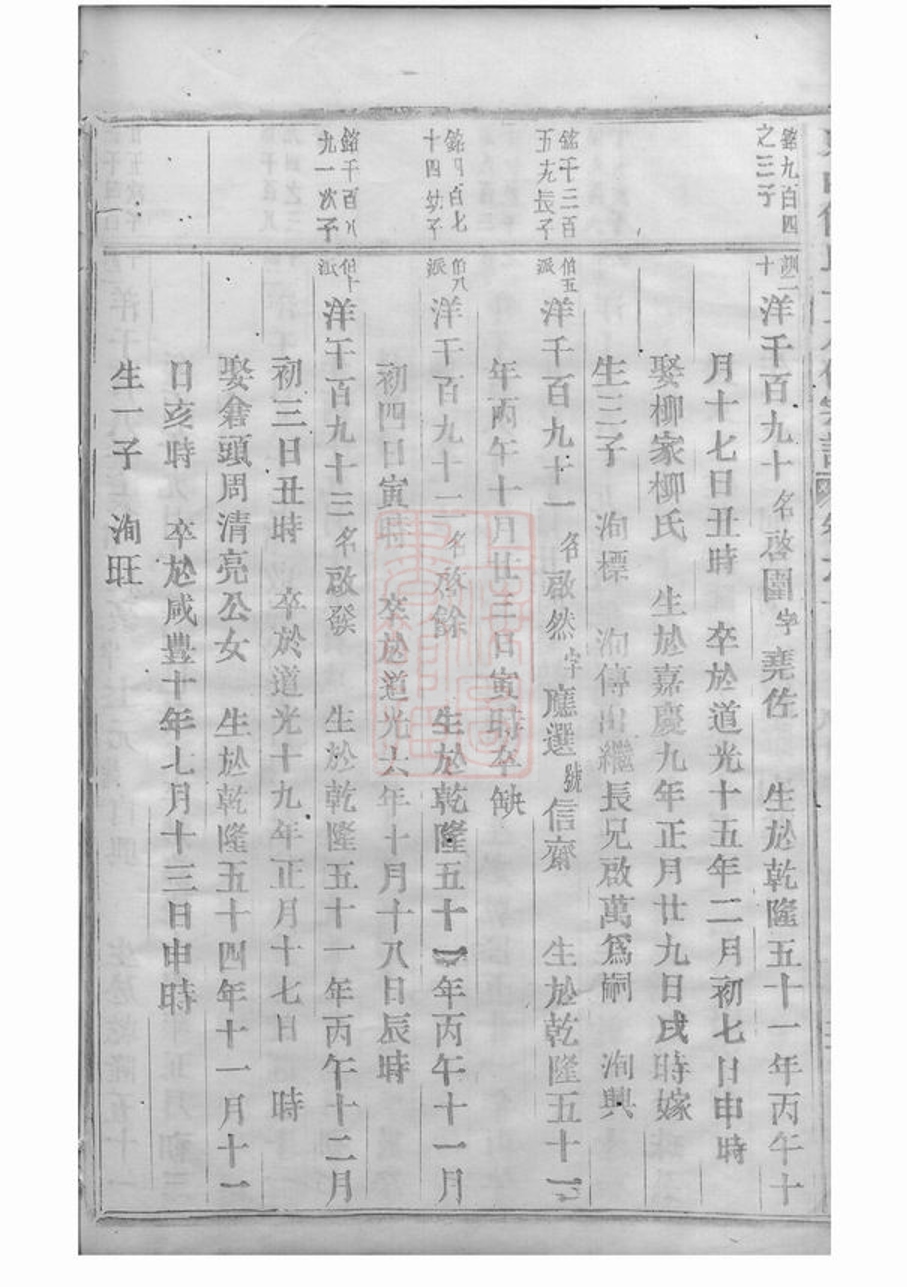 銘九百四
之三子
洋千百九十 名啓圍 字堯佐 生於乾隆五十一年丙午十
月十七日丑時 卒於道光十五年二月初七日申時
娶柳家柳氏 生於嘉慶九年正月廿九日戌時嫁
生三子 洵標 洵傳出繼長兄啟萬爲嗣 洵興
銘千三百
五九長子
伯五
派
洋千百九十一 名啟然 字應選 號信齋 生於乾隆五十一
年丙午十月廿三日寅時卒缺
百七
十四幼子
伯八
派
洋千百九十二 名啓餘 生於乾隆五十一年丙午十一月
初四日寅時 卒於道光六年十月十八日辰時
銘千百八
九一次子
伯十
派
洋千百九十三 名啟發 生於乾隆五十一年丙午十二月
初三日丑時 卒於道光十九年正月十七日 時
娶 頭周清亮公女 生於乾隆五十四年十一月十一
日亥時 卒於咸豐十年七月十三日申時
生一子 洵旺